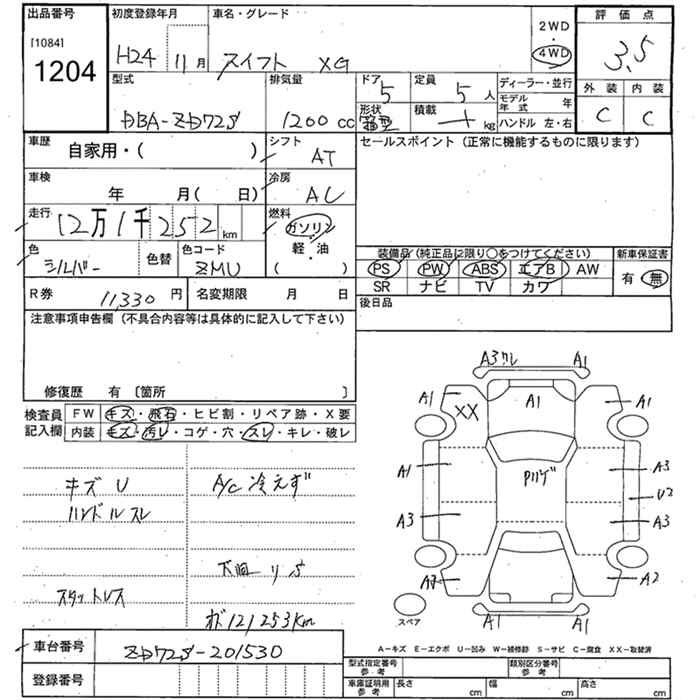 出品番号 初度登録年月 車名・グレード
[1084]
1204
H24 11月 スイフト XG
2WD
・
4WD
評価点
3.5
外装 内装
C C
型式 排気量 ドア 定員 ディーラー・並行
DBA-ZD72S 1200cc 5 5人
モデル年式 年
形状 積載 ハンドル 左・右
箱型 kg
車歴 シフト セールスポイント(正常に機能するものに限ります)
自家用・( ) AT
車検 冷房
年 月( 日) AC
走行 燃料
12万1千252km ガソリン
軽・油
( )
色 色替 色コード
シルバー ZMU
装備品(純正品に限り○をつけてください) 新車保証書
PS PW ABS エアB AW 有・無
SR ナビ TV カワ
R券 11,330円 名変期限 月 日
後日品
注意事項申告欄(不具合内容等は具体的に記入して下さい)
修復歴 有〔箇所 〕
検査員記入欄
FW キズ・飛石・ヒビ割・リペア跡・X要
内装 キズ・汚レ・コゲ・穴・スレ・キレ・破レ
キズU A/C冷えず
ハンドルスレ
スタットレス
121253Km
A3 A1
A1 A1 A1
XX
A1 A3
U2
A3 A3
A2
A1 A1
スペア
A-キズ E-エクボ U-凹み W-補修跡 S-サビ C-腐食 XX-取替済
車台番号 ZD72S-201530
登録番号
型式指定番号参考 類別区分番号参考
車庫証明用参考 長さ cm 幅 cm 高さ cm